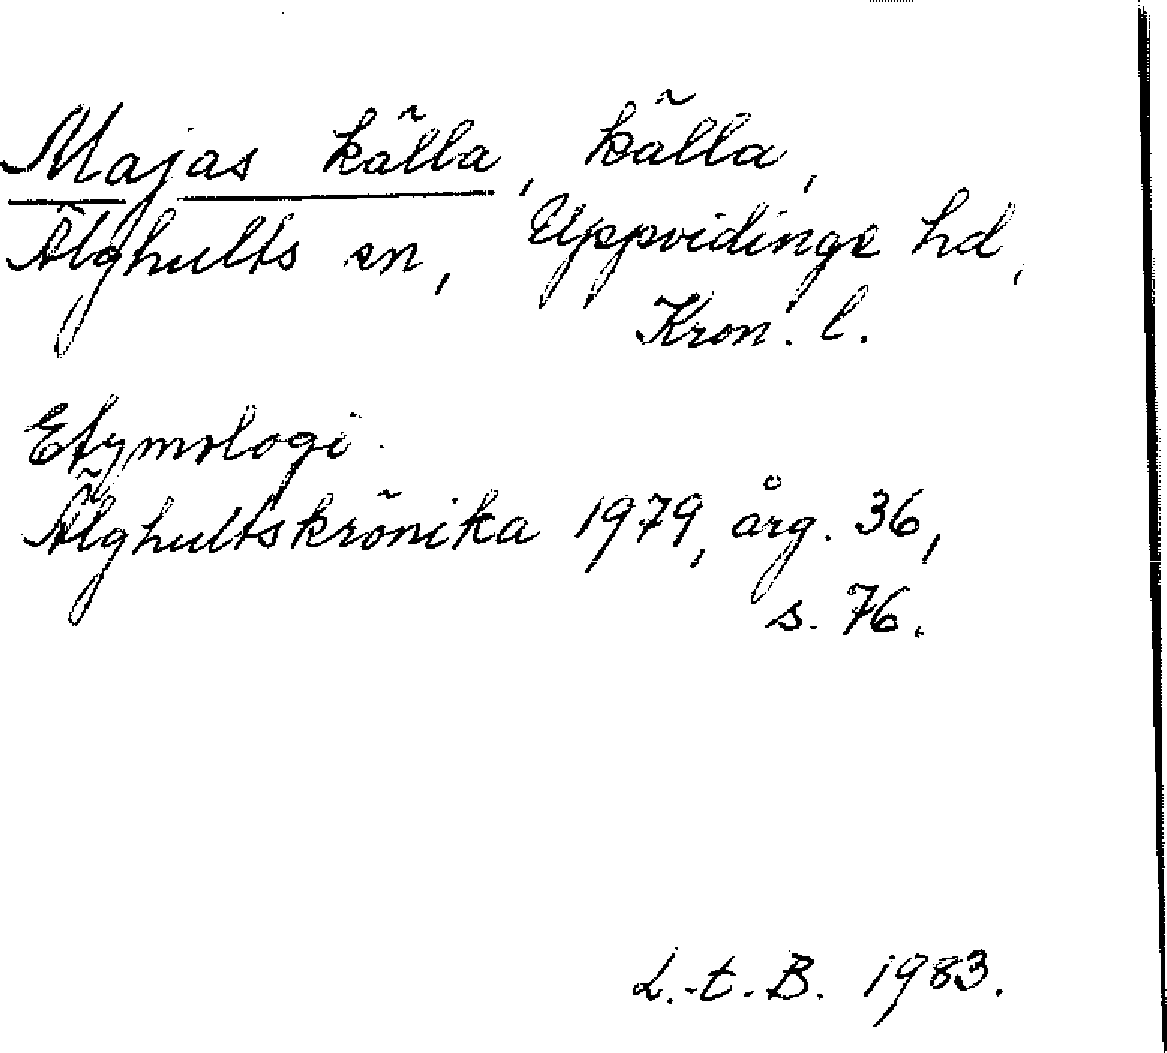 Majas källa, källa,
Älghults sn, Uppvidinge hd,
Kron. l.
Etymologi.
Älghultskrönika 1979, årg. 36,
s. 76.
L.-t. B. 1983.